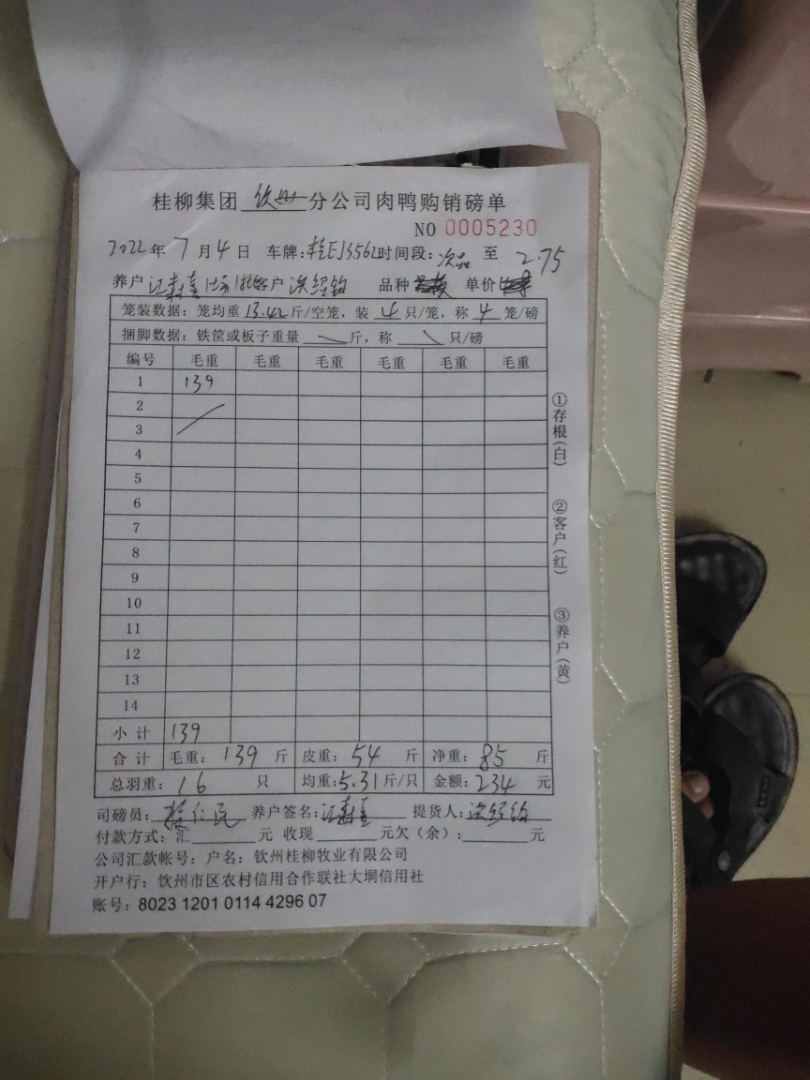 桂柳集团 钦州 分公司肉鸭购销磅单
NO 0005230
2022年 7 月 4 日 车牌: 桂EJ3562 时间段: 次品 至 2.75
养户 江寿喜 客户 洪绍钧 品种 单价
笼装数据: 笼均重 13.42 斤/空笼, 装 4 只/笼, 称 4 笼/磅
捆脚数据: 铁筐或板子重量 斤, 称 只/磅
编号 毛重 毛重 毛重 毛重 毛重 毛重
1 139
2
3
4
5
6
7
8
9
10
11
12
13
14
小计 139
合计 毛重: 139 斤 皮重: 54 斤 净重: 85 斤
总羽重: 16 只 均重: 5.31 斤/只 金额: 234 元
司磅员: 养户签名: 江寿喜 提货人: 洪绍钧
付款方式: 汇 元 收现 元欠(余): 元
公司汇款帐号: 户名: 钦州桂柳牧业有限公司
开户行: 钦州市区农村信用合作联社大垌信用社
账号: 8023 1201 0114 4296 07
①存根(白)
②客户(红)
③养户(黄)